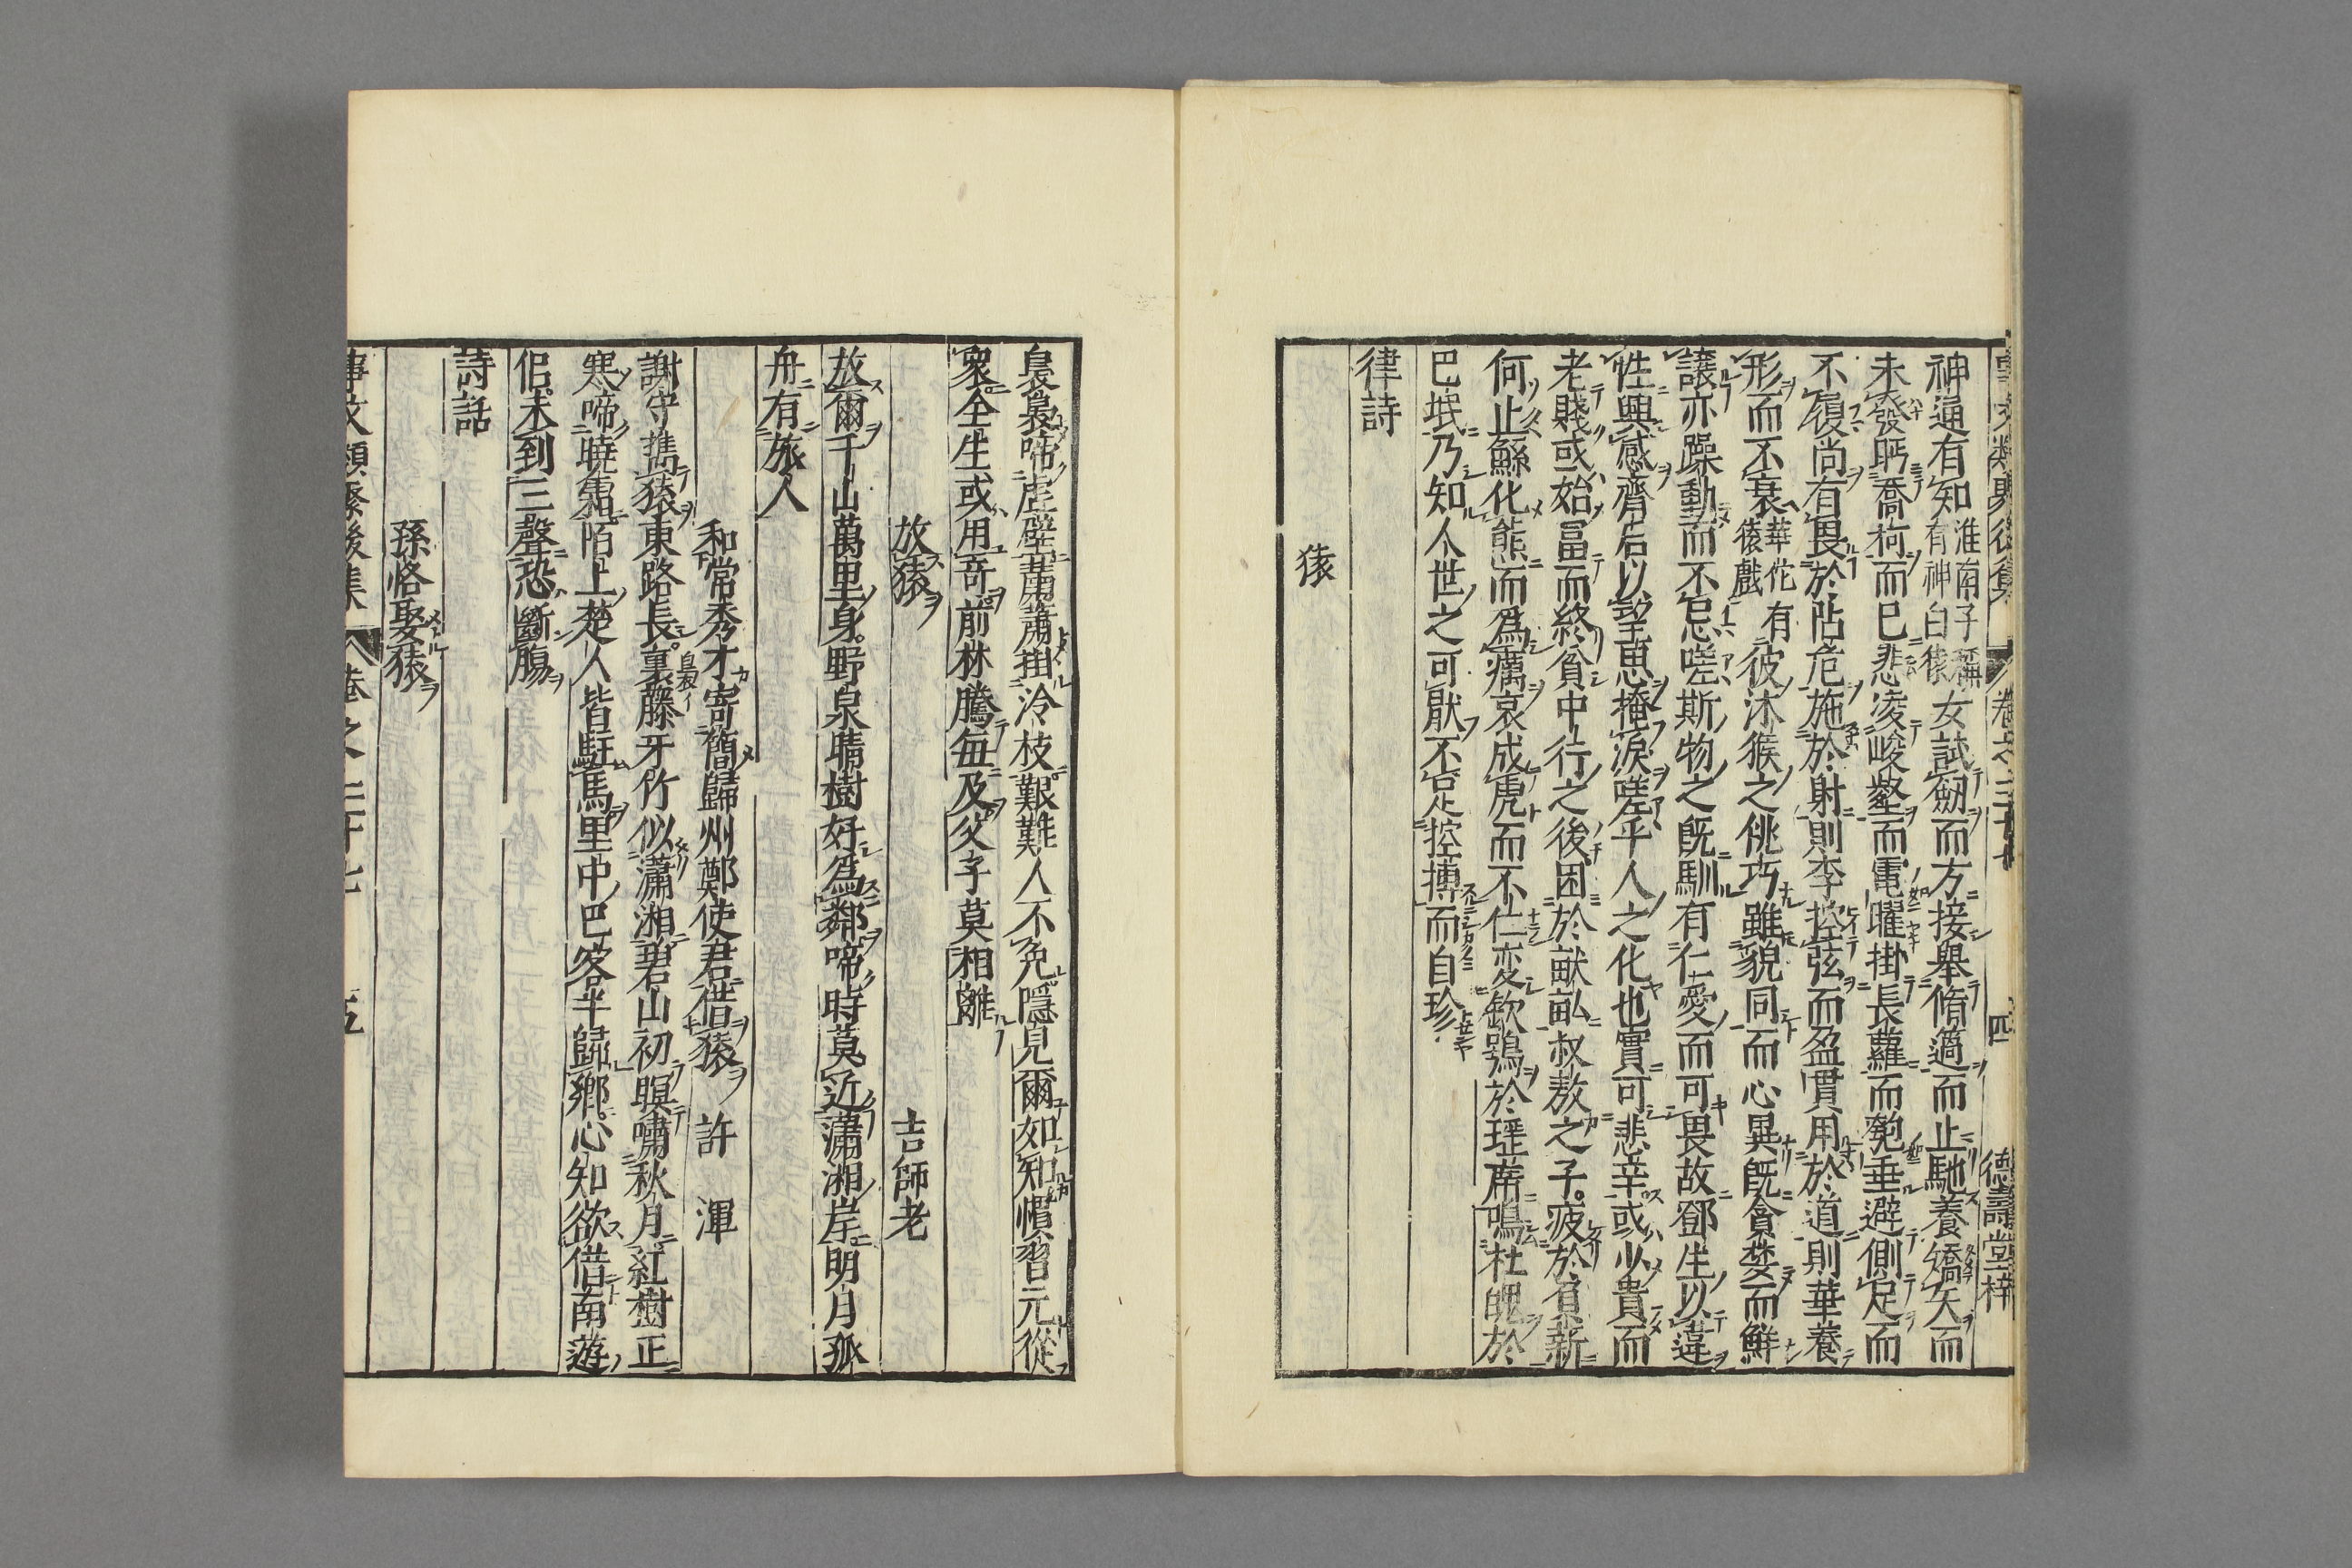 神通有知淮南子稱有神白猿女試劒而方接舉脩䈑而止馳養矯矢而
未發眄喬柯而已悲凌峻壑而電曜掛長蘿而㔫垂避側足而
不履尚有畏於阽危施於射則李控弦而盈貫用於道則華養
形而不衰華佗猿戲有彼沐猴之佻巧雖貌同而心異旣貪婪而鮮
讓亦躁動而不忌嗟斯物之旣馴有仁愛而可畏故鄧生以違
性興感齊后以望恵掩淚嗟乎人之化也實可悲辛或少貴而
老賤或始冨而終貧中行之後困於畎畝叔敖之子疲於負薪
何止鯀化熊而爲癘哀成虎而不仁変欽鴞於瑶席鳴杜魄於
巴垊乃知人世之可厭不足控摶而自珍
律詩
猿
裊裊啼虛壁蕭蕭掛冷枝艱難人不免隱見爾如知慣習元從
衆全生或用奇前林騰每及父子莫相離
放猿 吉師老
放爾千山萬里身野泉晴樹好爲鄰啼時莫近瀟湘岸明月孤
舟有旅人
和常秀才寄簡歸州鄭使君借猿 許渾
謝守携猿東路長裏藤牙竹似瀟湘碧山初暝嘯秋月紅樹正
寒啼曉霜陌上楚人皆駐馬里中巴客半歸鄉心知欲借南遊
侶未到三聲恐斷腸
詩話
孫恪娶猿
事文類聚後集 卷之三十七 五